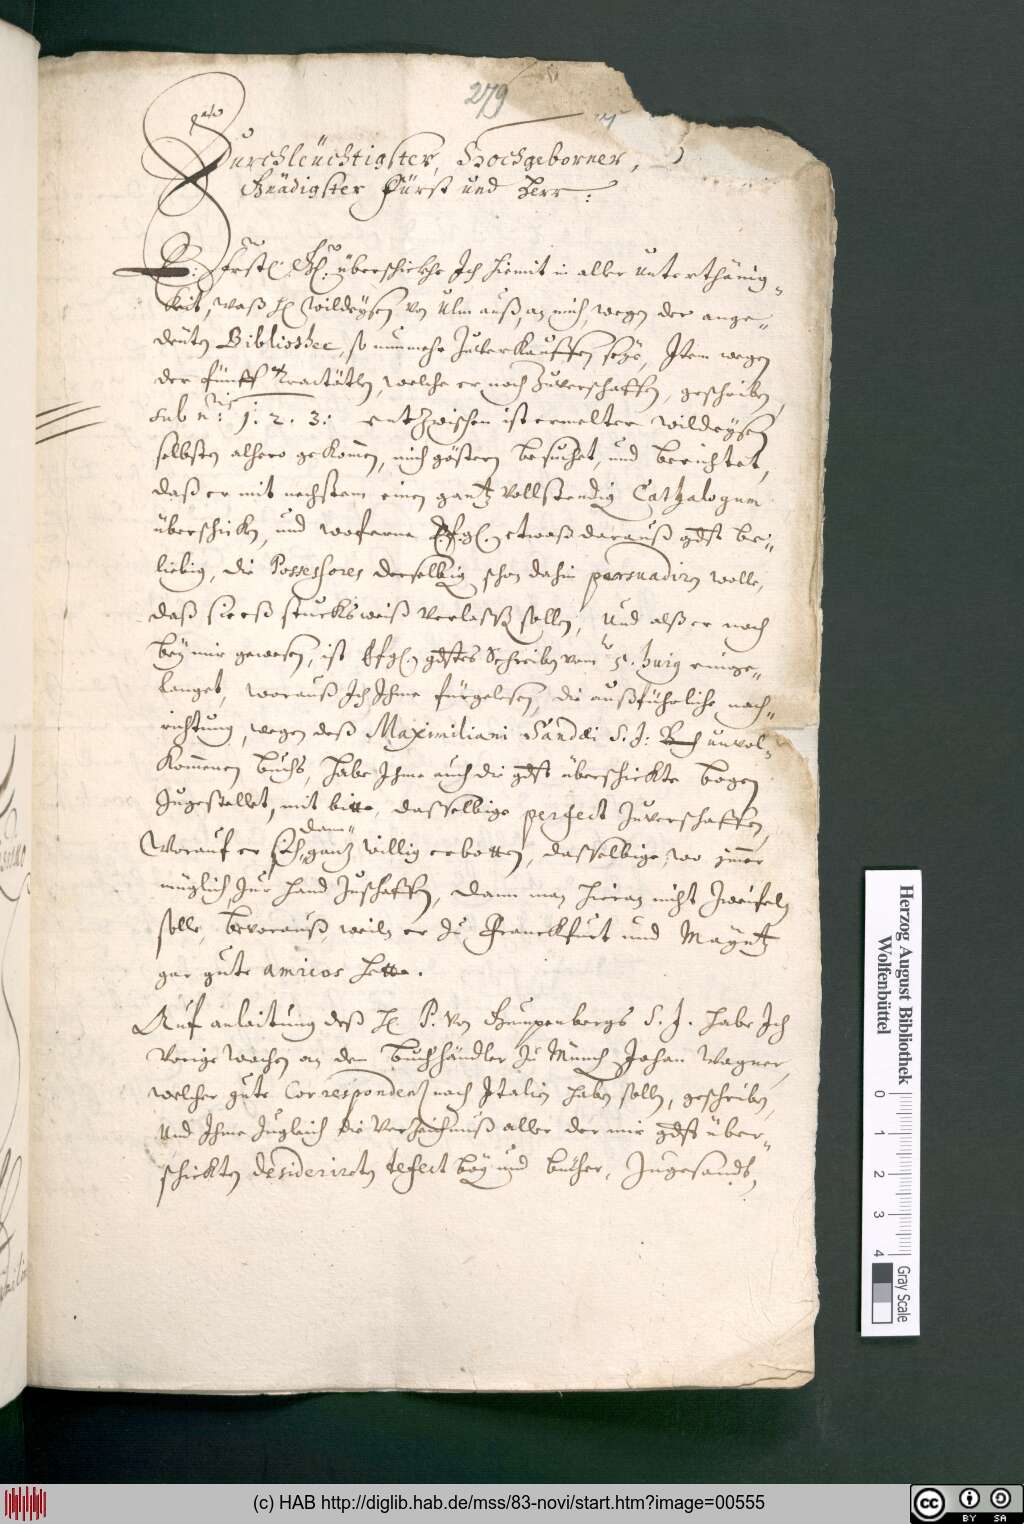 279
Durchleuchtigster, Hochgeborner,
Gnädigster Fürst und Herr:
E: Fürstl: Gl. überschickhe Ich hiemit in aller Unterthänig-
keit, waß H. Wildeysen von Ulm auß, an mich, wegen der ange-
deuten Bibliothec, so nunmehr zuverkauffen seye, Item wegen
der fünff Tractäthen, welche er noch zuverschaffen, geschriben,
sub n:ris 1. 2. 3: entzwischen ist ermelter Wildeysen
selbsten alhero gekommen, mich gestern besuchet, und berichtet,
daß er mit nechstem einen gantz vollstendig Cathalogum
überschicken, und woferne E.f.g. etwaß darauß gdst be-
liebig, die Possessores derselbig schon dahin persuadirn wolle,
daß sie eß stucksweiß verlassen sollen, Und alß er noch
bey mir gewesen, ist E.f.g. gdstes Schreiben vom 5. huig einge-
langet, worauß Ich Ihme fürgelesen, die außführliche nach-
richtung, wegen deß Maximiliani Sandæi S. J: Buch unvol-
kommenen Buchs, habe Ihme auch die gdst überschickte bogen
zugestellet, mit bitte, dasselbige perfect zuverschaffen,
Worauf er sich dann gantz willig erbotten, dasselbige, wo immer
müglich zur hand zuschaffen, dann man hieran nicht zweifeln
solle, bevorauß, weiln er zu Franckfurt und Mayntz
gar gute amicos hette.
Auf anleitung deß H. P. von Gumpenbergs S. J. habe Ich
vorige Wochen an den Buchhändler zu Münch Johan Wagner,
welcher gute Correspondenz nach Italien haben solle, geschriben,
Und Ihme zugleich die Verzeichnuß aller der mir gdst über-
schickten desiderirten defect bög und bücher, zugesandt,
Herzog August Bibliothek
Wolfenbüttel
0 1 2 3 4
Gray Scale
(c) HAB http://diglib.hab.de/mss/83-novi/start.htm?image=00555
cc BY SA